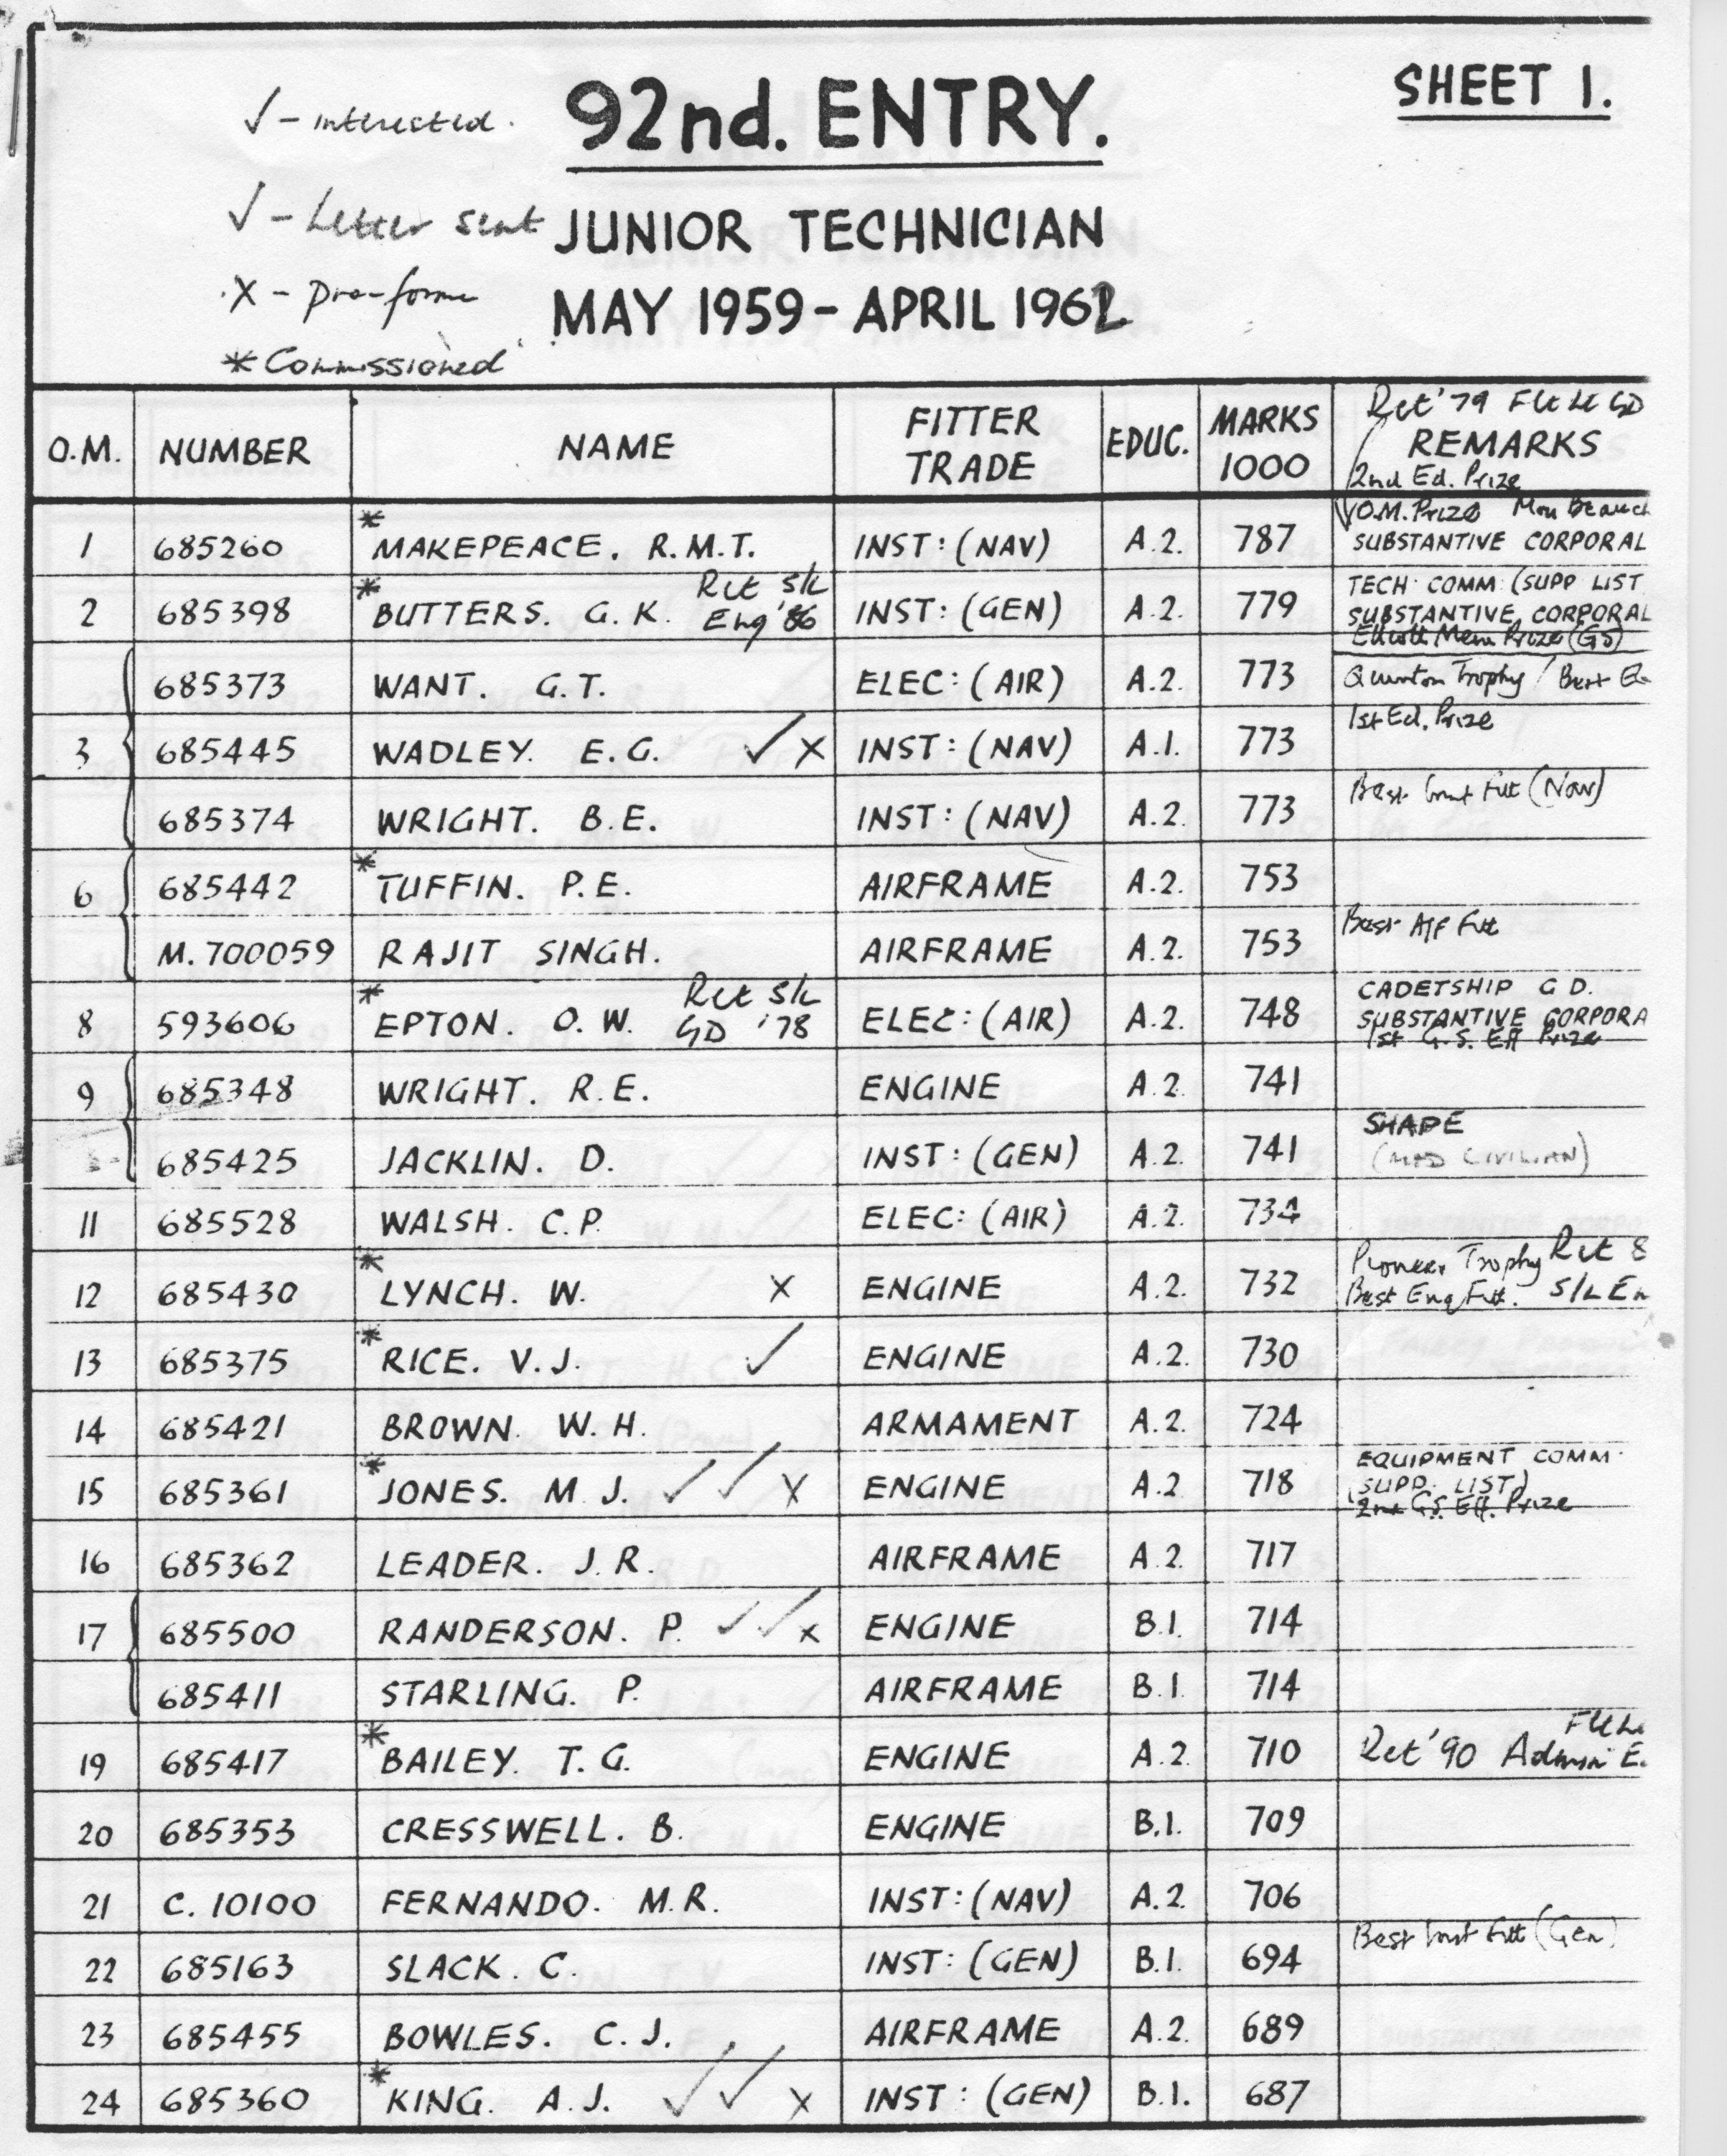 SHEET 1.
√ - interested.
92nd. ENTRY.
√ - Letter sent
JUNIOR TECHNICIAN
X - pro-forma
MAY 1959 - APRIL 1962
* Commissioned
O.M. NUMBER NAME FITTER TRADE EDUC. MARKS 1000 REMARKS
Ret '79 Flt Lt GD
2nd Ed. Prize
O.M. Prize
1 685260 * MAKEPEACE. R.M.T. INST: (NAV) A.2. 787 SUBSTANTIVE CORPORAL
2 685398 * BUTTERS. G. K. Ret S/L Eng '86 INST: (GEN) A.2. 779 TECH COMM (SUPP LIST
SUBSTANTIVE CORPORAL
Elliott Mem Prize (GS)
3 685373 WANT. G.T. ELEC: (AIR) A.2. 773 Quinton Trophy / Best
685445 WADLEY. E.G. √ X INST: (NAV) A.1. 773 1st Ed. Prize
685374 WRIGHT. B.E. INST: (NAV) A.2. 773 Best Inst Fitt (Nav)
6 685442 * TUFFIN. P.E. AIRFRAME A.2. 753
M. 700059 RAJIT SINGH. AIRFRAME A.2. 753 Best A/F Fitt
8 593606 * EPTON. O. W. Ret S/L GD '78 ELEC: (AIR) A.2. 748 CADETSHIP G D.
SUBSTANTIVE CORPORA
1st G.S. Eff Prize
9 685348 WRIGHT. R.E. ENGINE A.2. 741
685425 JACKLIN. D. INST: (GEN) A.2. 741 SHAPE
(MAD CIVILIAN)
11 685528 WALSH. C.P. ELEC: (AIR) A.2. 734
12 685430 * LYNCH. W. X ENGINE A.2. 732 Pioneer Trophy Ret 8
Best Eng Fitt. S/L En
13 685375 * RICE. V.J. √ ENGINE A.2. 730
14 685421 BROWN. W.H. ARMAMENT A.2. 724
15 685361 * JONES. M J. √ √ X ENGINE A.2 718 EQUIPMENT COMM
(SUPP. LIST)
2nd G.S. Eff. Prize
16 685362 LEADER. J.R. AIRFRAME A.2. 717
17 685500 RANDERSON. P. √ √ X ENGINE B.1. 714
685411 STARLING. P. AIRFRAME B.1. 714
19 685417 * BAILEY. T.G. ENGINE A.2. 710 Ret '90 Admin
20 685353 CRESSWELL. B. ENGINE B.1. 709
21 C. 10100 FERNANDO. M.R. INST: (NAV) A.2. 706
22 685163 SLACK. C. INST: (GEN) B.1. 694 Best Inst Fitt (Gen)
23 685455 BOWLES. C.J. AIRFRAME A.2. 689
24 685360 * KING. A.J. √ √ X INST: (GEN) B.1. 687